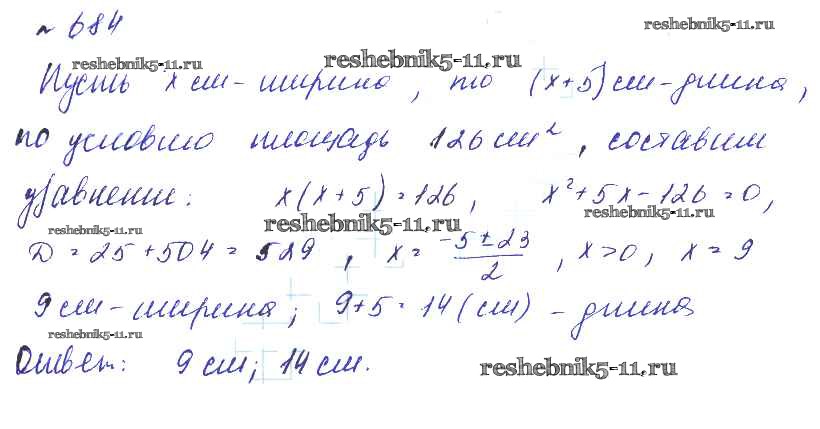 № 684 reshebnik5-11.ru
reshebnik5-11.ru reshebnik5-11.ru
Пусть x см - ширина, то (x+5) см - длина,
по условию площадь 126 см², составим
уравнение: x(x+5) = 126, x²+5x-126=0,
reshebnik5-11.ru reshebnik5-11.ru reshebnik5-11.ru
D = 25+504 = 529, x = (-5±23)/2, x>0, x = 9
9 см - ширина; 9+5 = 14 (см) - длина
reshebnik5-11.ru
Ответ: 9 см; 14 см. reshebnik5-11.ru